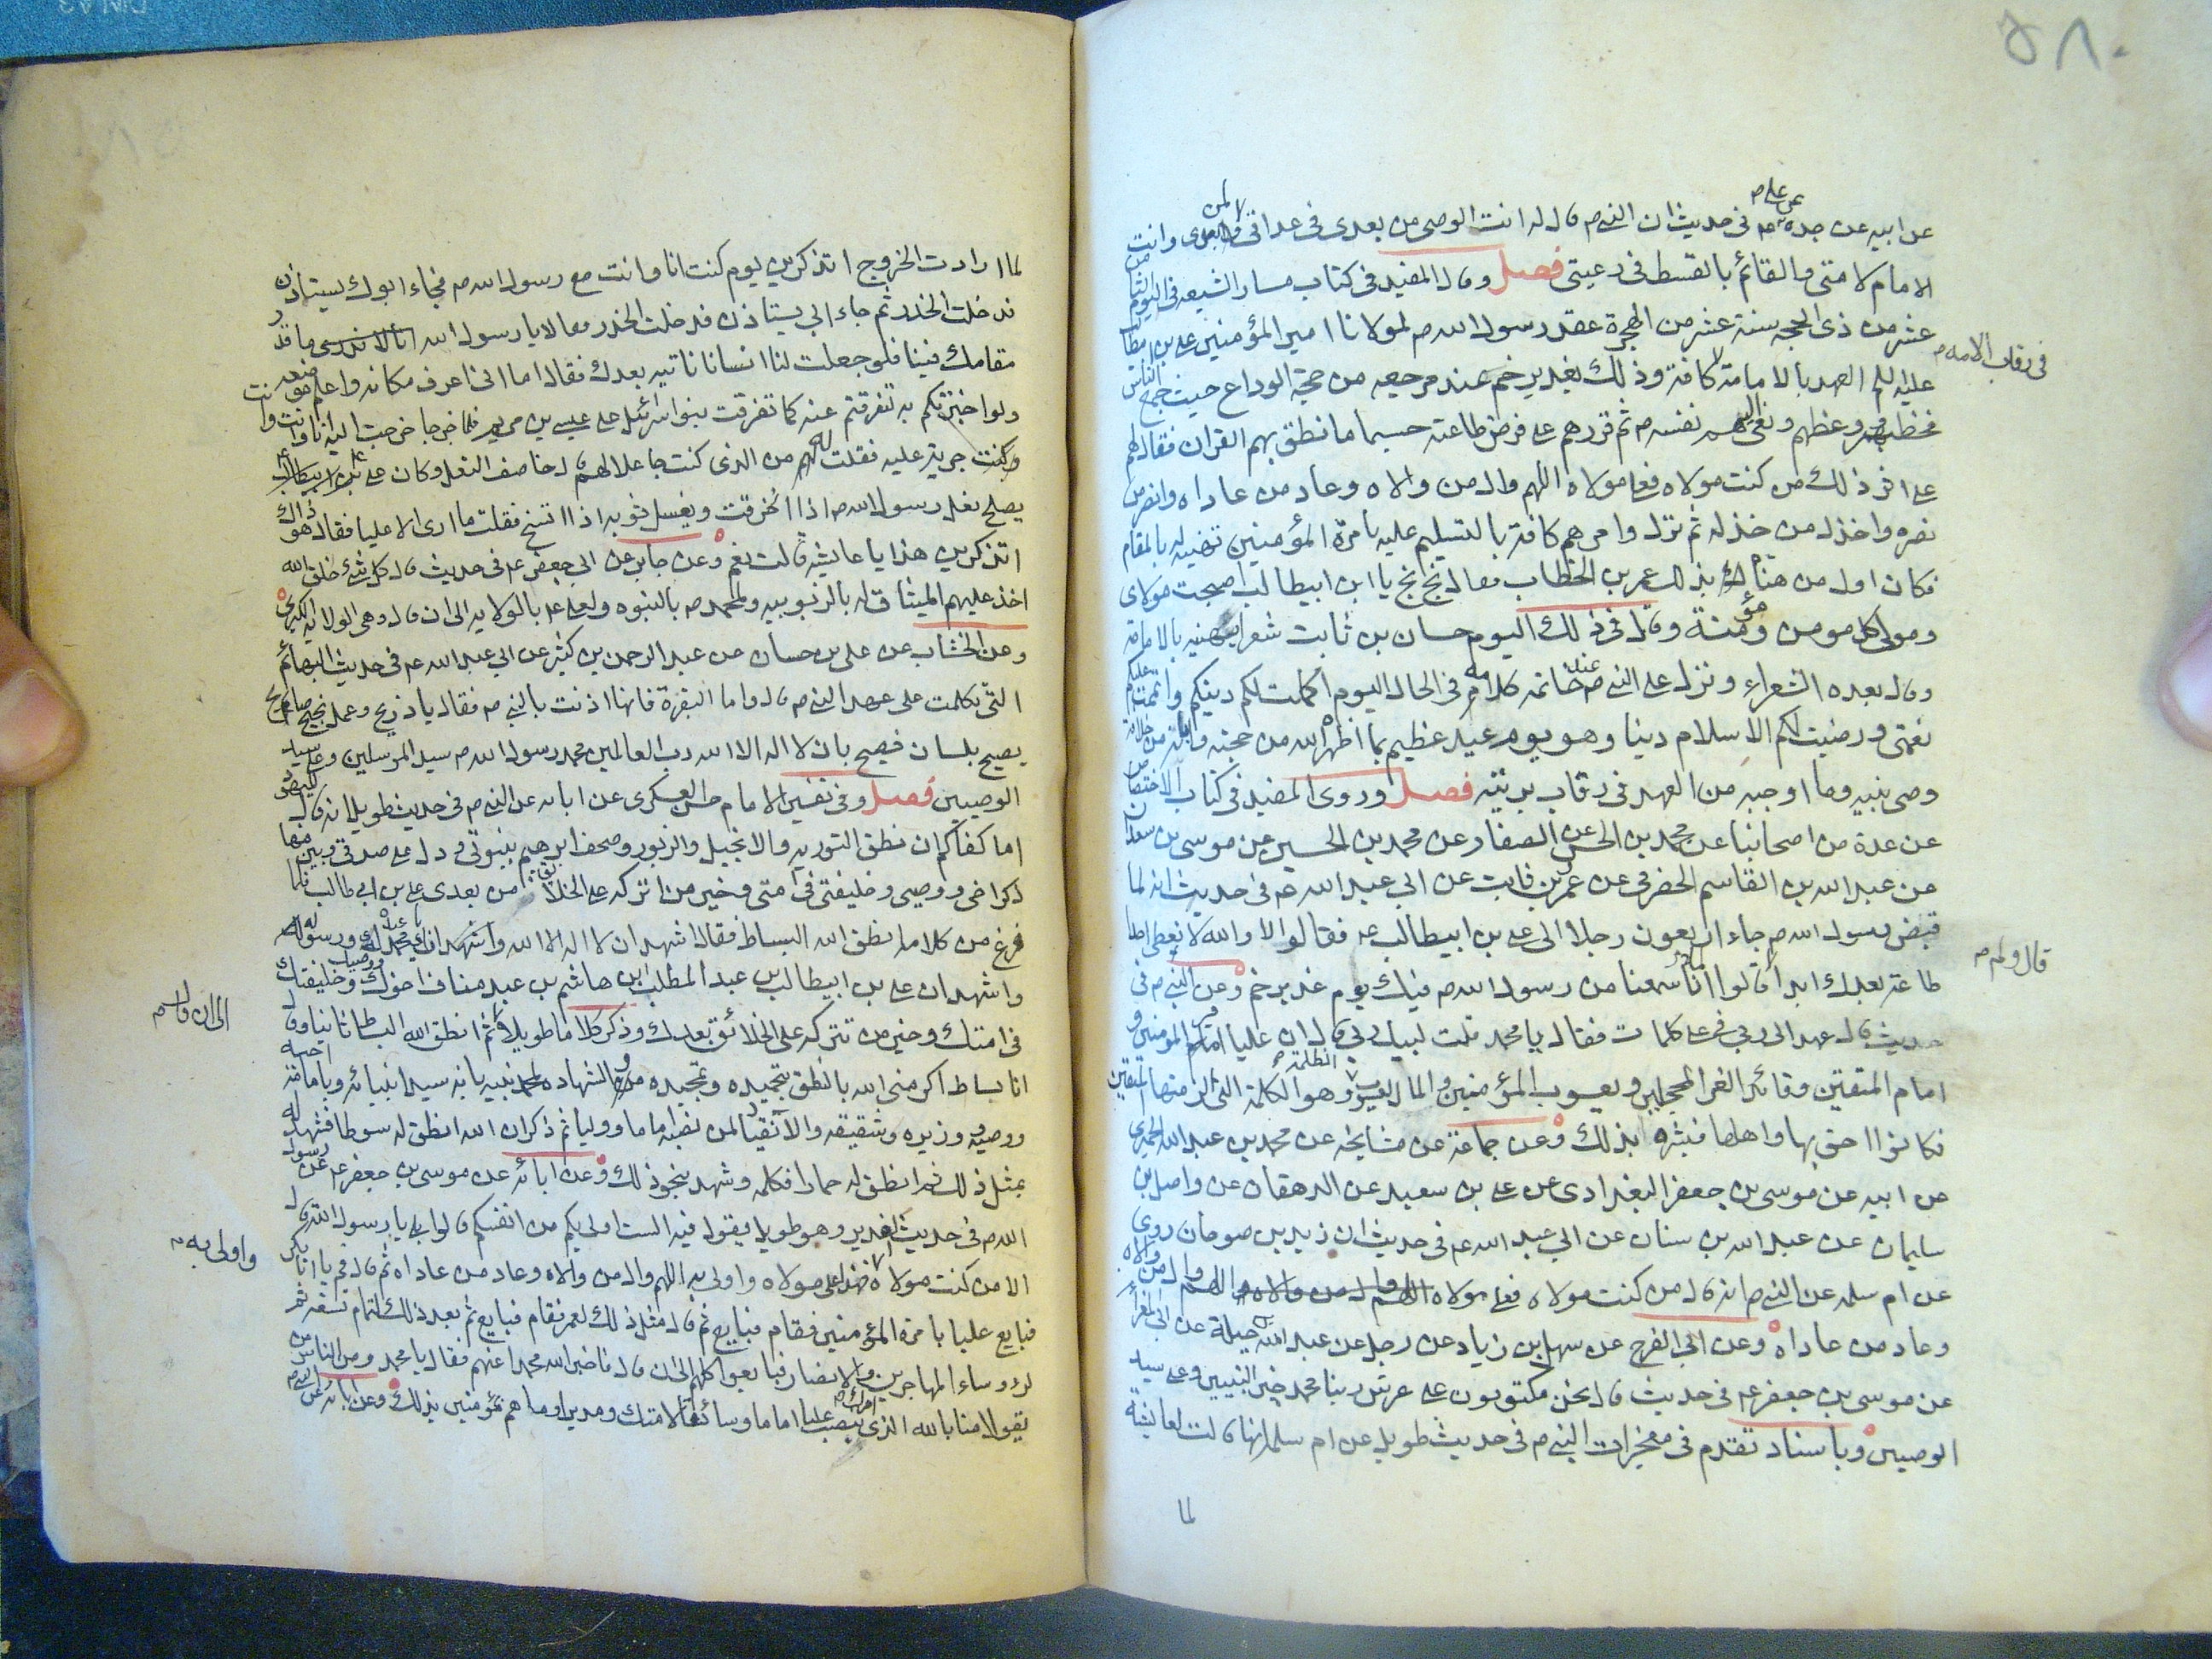 ٥٨٠
عن علي ص
عن ابيه عن جده عم في حديث ان النبي ص قال له انت الوصي من بعدى في عداتى وامرى وانت
الامام لامتى والقائم بالقسط في رعيتى فصل وقال المفيد في كتاب مسار الشيعه في اليوم الثامن
عشر من ذى الحجه سنة عشر من الهجرة عقد رسول الله ص لمولانا امير المؤمنين علي بن ابيطالب
في رقاب الامه ص
عليه السلم العهد بالامامة كافة وذلك بغدير خم عند مرجعه من حجة الوداع حيث جمع الناس
فخطبهم ووعظهم ونعى اليهم نفسه ص ثم قررهم على فرض طاعته حسبما نطق بهم القران فقال لهم
على اثر ذلك من كنت مولاه فعلي مولاه اللهم وال من والاه وعاد من عاداه وانصر من
نصره واخذل من خذله ثم نزل وامرهم كافة بالتسليم عليه بامرة المؤمنين تهنية له بالمقام
فكان اول من هناه بذلك عمر بن الخطاب فقال بخ بخ يا ابن ابيطالب اصبحت مولاى
ومولى كل مومن ومؤمنة وقال في ذلك اليوم حسان بن ثابت شعرا يهنيه بالامامة
وقال بعده الشعراء ونزل على النبي ص عند خاتمة كلامه في الحال اليوم اكملت لكم دينكم واتممت عليكم
نعمتى ورضيت لكم الاسلام دينا وهو يوم عيد عظيم بما اظهر الله من حجته وابانه من خلافة
وصى نبيه وما اوجبه من العهد في رقاب بريته فصل وروى المفيد في كتاب الاختصاص
عن عدة من اصحابنا عن محمد بن الحسن عن الصفار عن محمد بن الحسين عن موسى بن سعدان
عن عبد الله بن القاسم الحضرمى عن عمر بن ثابت عن ابي عبد الله عم في حديث انه لما
قبض رسول الله ص جاء اربعون رجلا الى علي بن ابيطالب عم فقالوا لا والله لا نعطى احدا
قال ولم ص
طاعة بعدك ابدا قالوا انا سمعنا من رسول الله ص فيك يوم غدير خم وعن النبي ص في
حديث قال عهد الى ربي في علي كلمات فقال يا محمد قلت لبيك ربي قال ان عليا امير المومنين و
امام المتقين وقائد الغر المحجلين ويعسوب المؤمنين والمال يعسوب الظلمة وهو الكلمة التى الزمتها المتقين
فكانوا احق بها واهلها فبشره بذلك وعن جماعة عن مشايخه عن محمد بن عبد الله الحميرى
عن ابيه عن موسى بن جعفر البغدادى عن علي بن سعيد عن الدهقان عن واصل بن
سليمان عن عبد الله بن سنان عن ابي عبد الله عم في حديث ان زيد بن صوحان روى
عن ام سلمه عن النبي ص انه قال من كنت مولاه فعلي مولاه اللهم وال من والاه
وعاد من عاداه وعن ابي الفرج عن سهل بن زياد عن رجل عن عبد الله بن جبلة عن ابي المغرا
عن موسى بن جعفر عم في حديث قال نحن مكتوبون على عرش ربنا محمد خير النبيين وعلي سيد
الوصيين وباسناد تقدم في معجزات النبي ص في حديث طويل عن ام سلمه انها قالت لعايشة
لما
لما ارادت الخروج اتذكرين يوم كنت انا وانت مع رسول الله ص فجاء ابوك يستاذن
فدخلت الخدر ثم جاء ابي يستاذن فدخلت الخدر فقالا يا رسول الله انا لا ندرى ما قدر
مقامك فينا فلو جعلت لنا انسانا ناتيه بعدك فقال اما انى اعرف مكانه واعلم موضعه
ولو اخبرتكم به لتفرقتم عنه كما تفرقت بنو اسرائيل على عيسى بن مريم فلما خرجا خرجت اليه انا وانت
وكنت جريئة عليه فقلت له من الذى كنت جاعلا لهم قال خاصف النعل وكان علي بن ابيطالب
يصلح نعل رسول الله ص اذا انخرقت ويغسل ثوبه اذا اتسخ فقلت ما ارى الا عليا فقال هو ذاك
اتذكرين هذا يا عايشة قالت نعم وعن جابر عن ابي جعفر عم في حديث قال كل شيء خلق الله
اخذ عليهم الميثاق له بالربوبيه ولمحمد ص بالنبوه ولعلي عم بالولايه الى ان قال وهى الولايه الكبرى
وعن الخشاب عن علي بن حسان عن عبد الرحمن بن كثير عن ابي عبد الله عم في حديث البهائم
التي تكلمت على عهد النبي ص قال واما البقرة فانها اذنت بالنبي ص فقال يا ذريح وعمل نجيح صايح
يصيح بلسان فصيح بان لا اله الا الله رب العالمين محمد رسول الله ص سيد المرسلين وعلي سيد
الوصيين فصل وفى تفسير الامام حسن العسكرى عن ابائه عن النبي ص في حديث طويل انه قال لليهود
اما كفاكم ان نطق التوريه والانجيل والزبور وصحف ابرهيم بنبوتى ودل على صدقى وبين فيها
ذكر اخى ووصيى وخليفتى في امتى وخير من اتركه على الخلائق من بعدى علي بن ابي طالب فلما
فرغ من كلامه انطق الله البساط فقال اشهد ان لا اله الا الله واشهد انك يا محمد عبده ورسوله
واشهد ان علي بن ابيطالب بن عبد المطلب بن هاشم بن عبد مناف اخوك ووصيك وخليفتك
في امتك وخير من تتركه على الخلائق بعدك وذكر كلاما طويلا ثم انطق الله البساط ثانيا وقال
انا بساط اكرمنى الله بالنطق بتحيده وتمجيده والشهاده لمحمد نبيه بانه سيد انبيائه وبامامة
ووصيه ووزيره وشقيقه والانقياد لمن نصبه اماما ووليا ثم ذكر ان الله انطق له سوطا فشهد له
بمثل ذلك ثم انطق له حمارا فكلمه وشهد بنحو ذلك وعن ابائه عن موسى بن جعفر عم عن رسول
الله ص في حديث الغدير وهو طويل يقول فيه الست اولى بكم من انفسكم قالوا بلى يا رسول الله قال
الا من كنت مولاه فهذا علي مولاه واولى به اللهم وال من والاه وعاد من عاداه ثم قال قم يا ابا بكر
واولى به ص
فبايع عليا بامرة المؤمنين فقام فبايع ثم قال مثل ذلك لعمر فقام فبايع ثم بعد ذلك لتمام تسعة ثم
لرؤوساء المهاجرين والانصار فبايعوا كلهم الى ان قال فاخبر الله محمدا عنهم فقال يا محمد ومن الناس من
يقول امنا بالله الذى امرك بنصب علي اماما وسائسا لامتك ومدبرا وما هم بمؤمنين بذلك وعن ابائه عن النبي ص